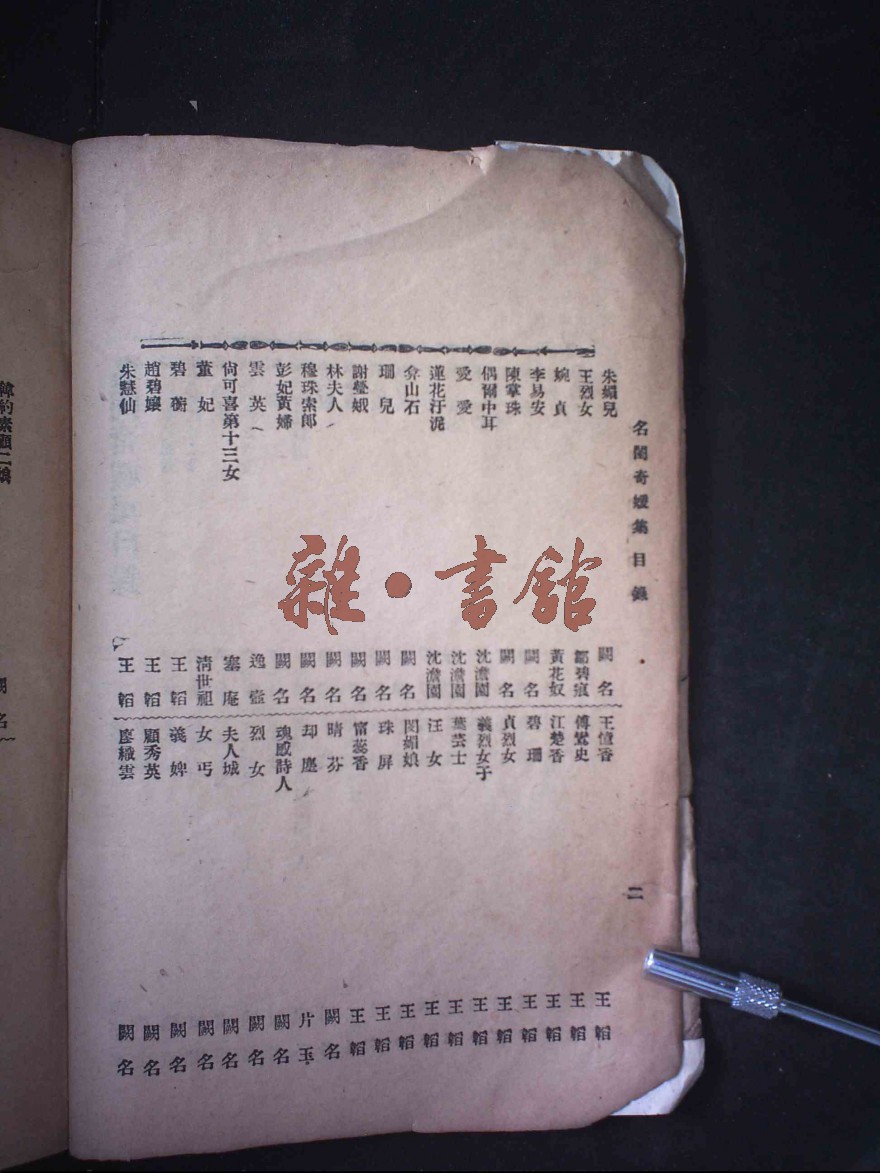 名閨奇媛集目錄 二
朱媚兒 闕名
王烈女 鄒碧痕
婉貞 黃花奴
李易安 闕名
陳掌珠 闕名
偶爾中耳 沈澹園
愛愛 沈澹園
蓮花汙泥 沈澹園
弇山石 闕名
珊兒 闕名
謝瑩娥 闕名
林夫人 闕名
穆珠索郎 闕名
彭妃黃婦 闕名
雲英 逸壺
尙可喜第十三女 塞庵
董妃 清世祖
碧蘅 王韜
趙碧孃 王韜
朱慧仙 王韜
王憶香 王韜
傅鸞史 王韜
江楚香 王韜
碧珊 王韜
貞烈女 王韜
義烈女子 王韜
葉芸士 王韜
汪女 王韜
閔媚娘 王韜
珠屏 王韜
甯蕊香 王韜
晴芬 闕名
却塵 片玉
魂感詩人 闕名
烈女 闕名
夫人城 闕名
女丐 闕名
義婢 闕名
顧秀英 闕名
廖織雲 闕名
雜·書館